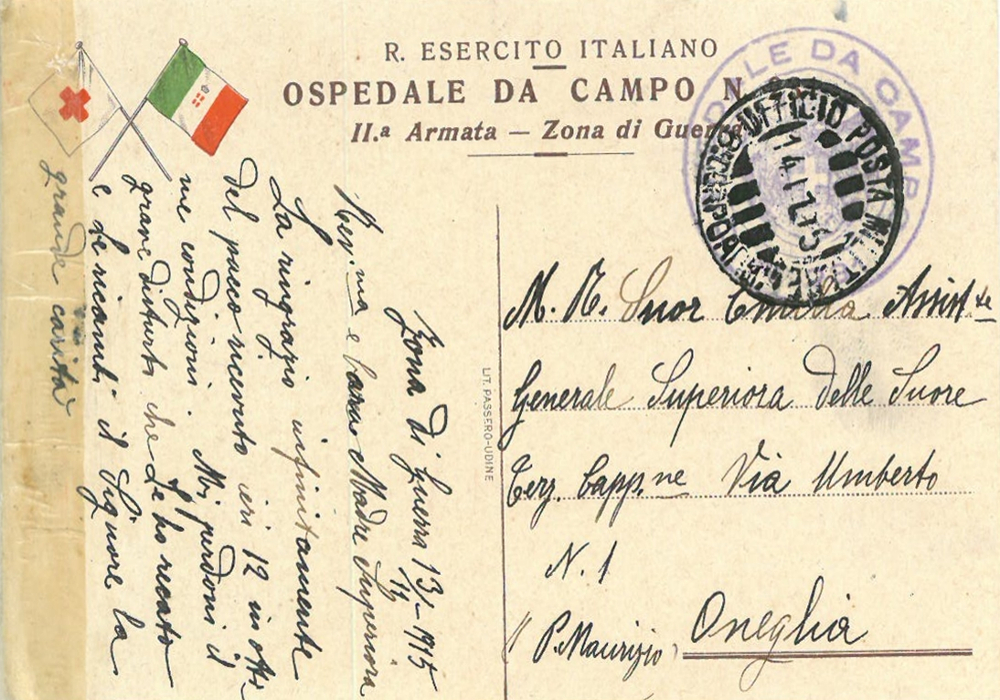 R. ESERCITO ITALIANO
OSPEDALE DA CAMPO N.
II.ª Armata — Zona di Guerra
OSPEDALE DA CAMPO
UFFICIO POSTA MILITARE
Zona di guerra 13/11-1915
Rev.ma e cara Madre Superiora
La ringrazio infinitamente
del pacco ricevuto ieri 12 in
me condizioni. Mi perdoni il
grave disturbo che Le ho recato
e Le ricambi il Signore la
grande carità
LIT. PASSERO-UDINE
M. R. Suor Emilia Assist.te
Generale Superiora delle Suore
Terz. Capp.ne Via Umberto
N. 1
(P. Maurizio) Oneglia